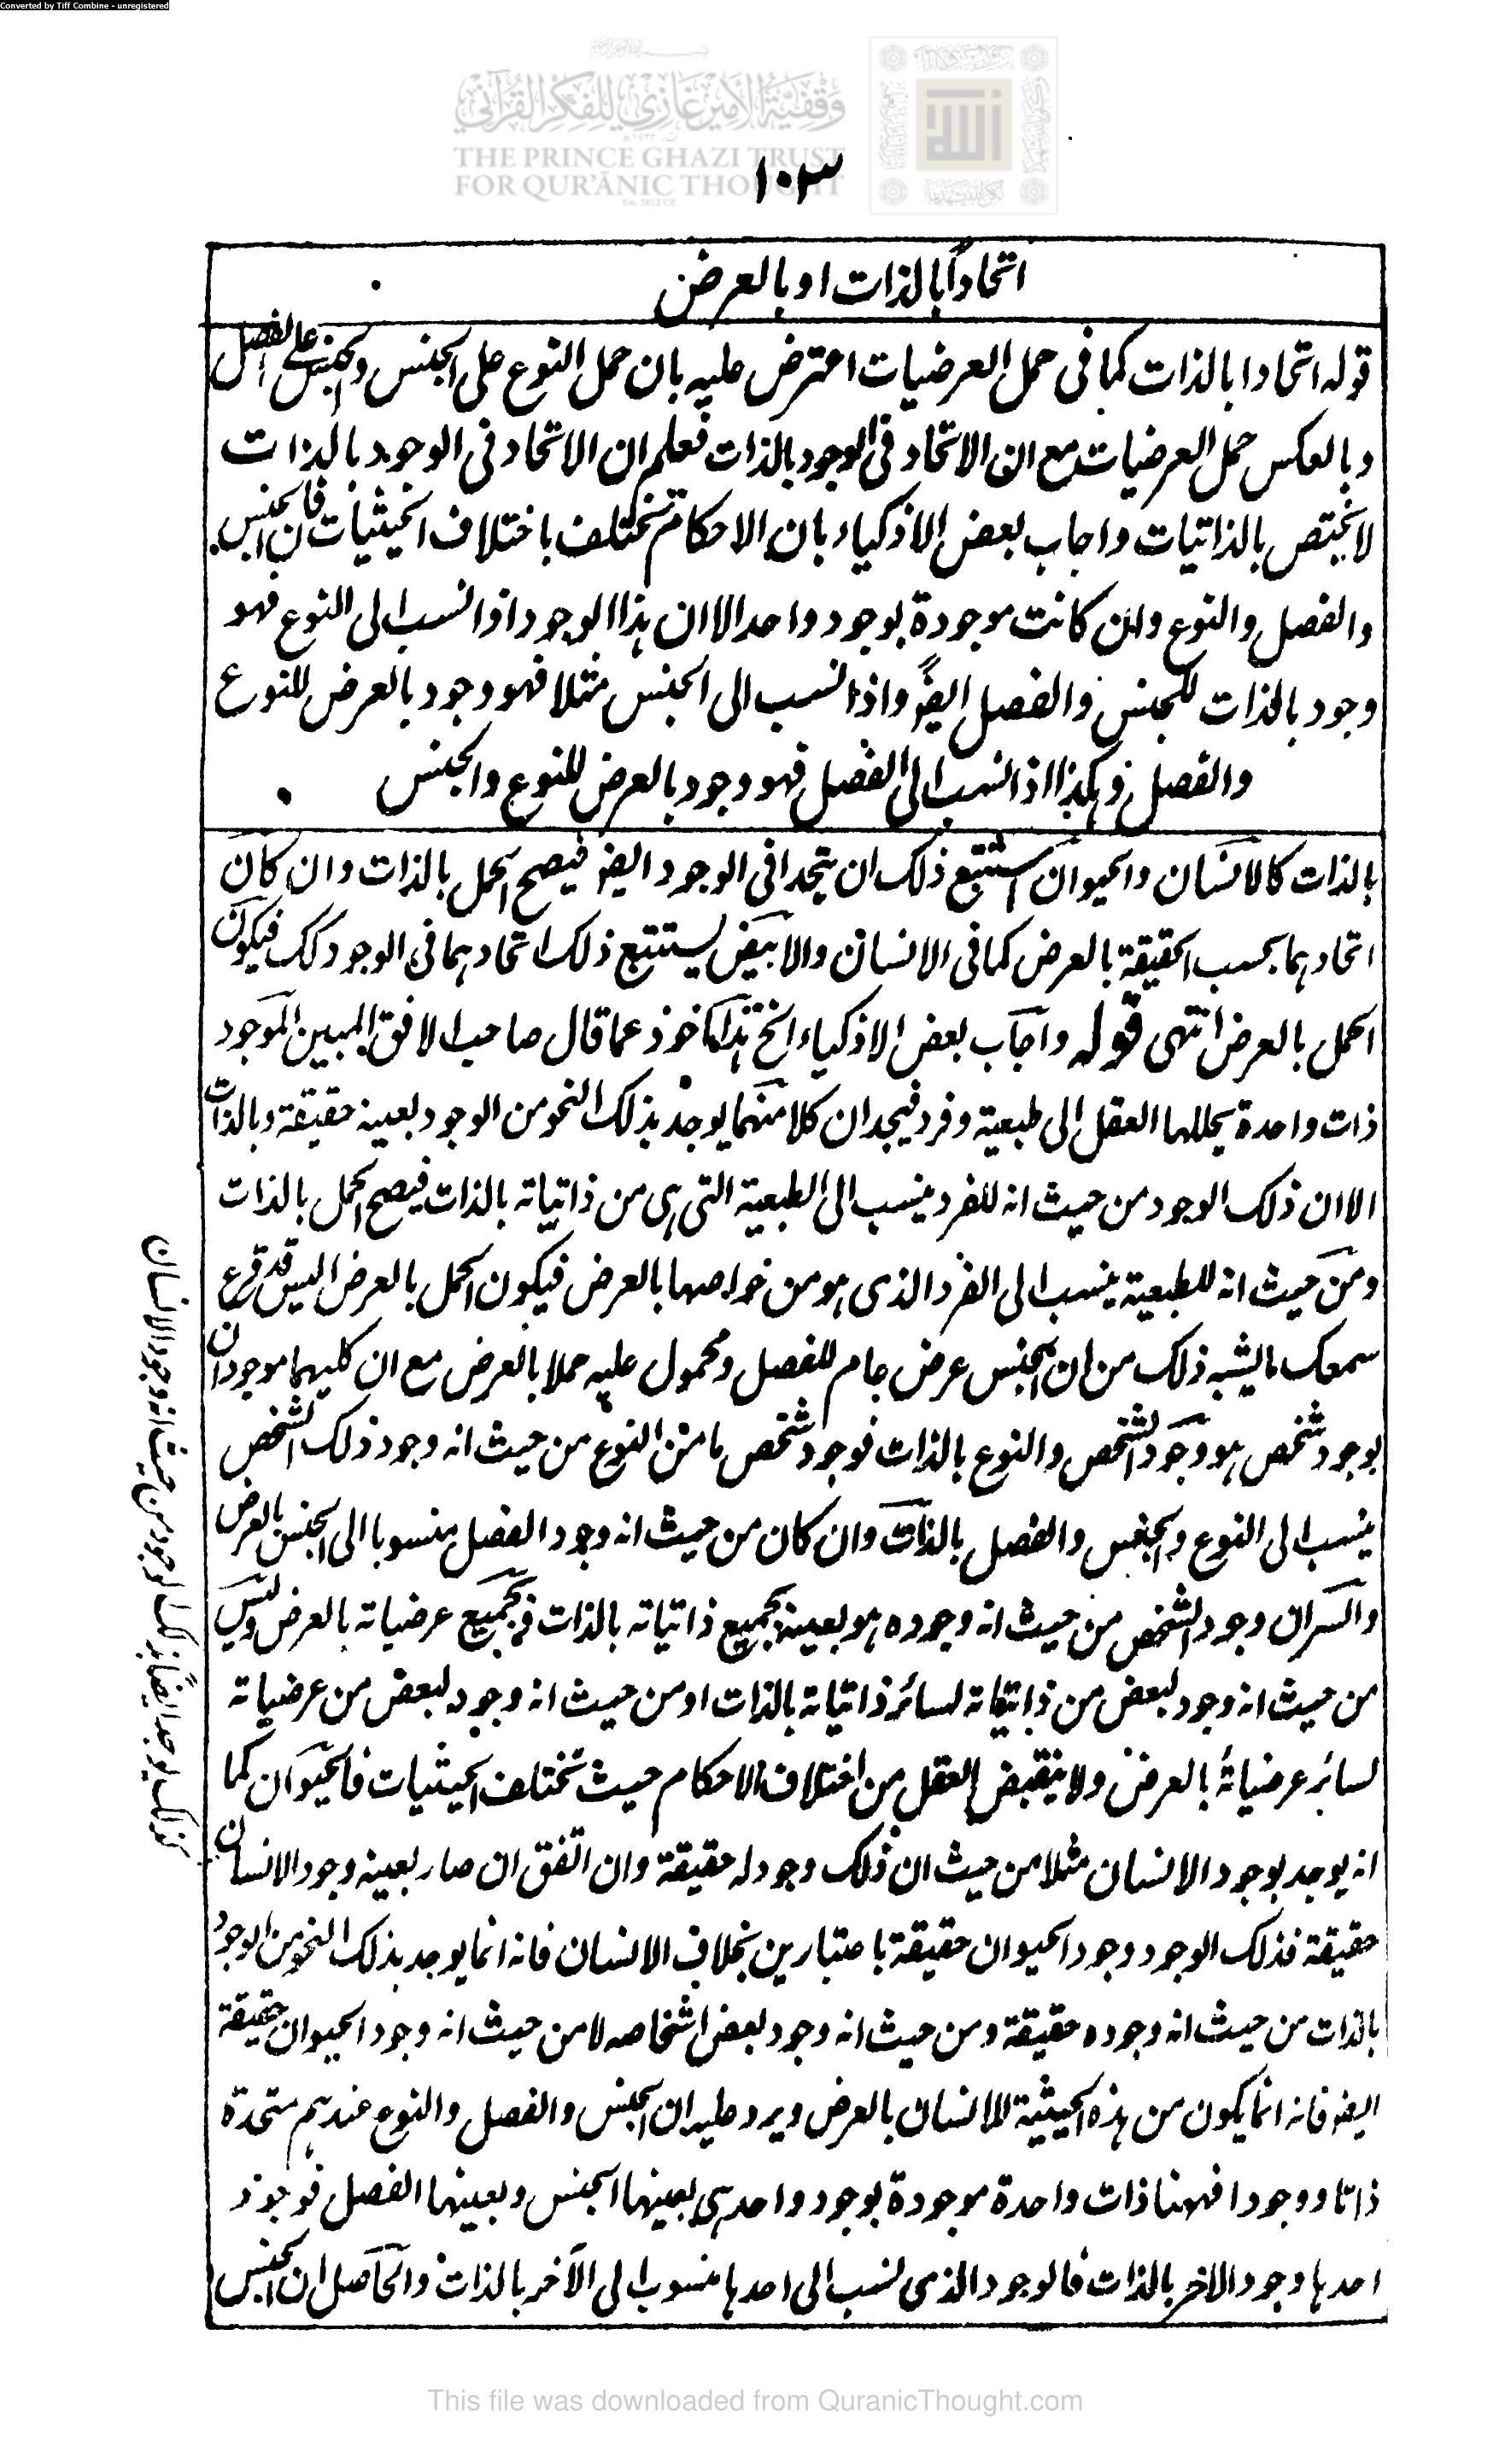 Converted by Tiff Combine - unregistered
وقفية الأمير غازي للفكر القرآني
THE PRINCE GHAZI TRUST
FOR QUR'ĀNIC THOUGHT
١٠٣
اتحادًا بالذات او بالعرض
قوله اتحادا بالذات كما فى حمل العرضيات اعترض عليه بان حمل النوع على الجنس والجنس على الفصل
وبالعكس حمل العرضيات مع ان الاتحاد فى الوجود بالذات فعلم ان الاتحاد فى الوجود بالذات
لا يختص بالذاتيات واجاب بعض الاذكياء بان الاحكام تختلف باختلاف الحيثيات فان الجنس
والفصل والنوع وان كانت موجودة بوجود واحد الا ان هذا الوجود اذا نسب الى النوع فهو
وجود بالذات للجنس والفصل ايضو واذا نسب الى الجنس مثلا فهو وجود بالعرض للنوع
والفصل وهكذا اذا نسب الى الفصل فهو وجود بالعرض للنوع والجنس
بالذات كالانسان والحيوان استتبع ذلك ان يتحدا فى الوجود ايضو فيصح الحمل بالذات وان كان
اتحادهما بحسب الحقيقة بالعرض كما فى الانسان والابيض يستتبع ذلك اتحادهما فى الوجود كك فيكون
الحمل بالعرض انتهى قوله واجاب بعض الاذكياء الخ هذا ماخوذ عما قال صاحب الافق المبين الموجود
ذات واحدة يحللها العقل الى طبعية وفرد فيجد ان كلا منهما يوجد بذلك النحو من الوجود بعينه حقيقة وبالذات
الا ان ذلك الوجود من حيث انه للفرد ينسب الى الطبعية التى هى من ذاتياته بالذات فيصح الحمل بالذات
ومن حيث انه للطبعية ينسب الى الفرد الذى هو من خواصها بالعرض فيكون الحمل بالعرض اليس قد قرع
سمعك ما يشبه ذلك من ان الجنس عرض عام للفصل ومحمول عليه حملا بالعرض مع ان كليهما موجودان
بوجود شخص هو وجود الشخص والنوع بالذات فوجود شخص ما من النوع من حيث انه وجود ذلك الشخص
ينسب الى النوع والجنس والفصل بالذات وان كان من حيث انه وجود الفصل منسوبا الى الجنس بالعرض
والسر ان وجود الشخص من حيث انه وجوده هو بعينه لجميع ذاتياته بالذات ولجميع عرضياته بالعرض وليس
من حيث انه وجود لبعض من ذاتياته لسائر ذاتياته بالذات او من حيث انه وجود لبعض من عرضياته
لسائر عرضياته بالعرض ولا ينقبض العقل من اختلاف الاحكام حيث تختلف الحيثيات فالحيوان كما
انه يوجد بوجود الانسان مثلا من حيث ان ذلك وجود له حقيقة وان اتفق ان صار بعينه وجود الانسان
حقيقة فذلك الوجود وجود الحيوان حقيقة باعتبارين بخلاف الانسان فانه انما يوجد بذلك النحو من الوجود
بالذات من حيث انه وجوده حقيقة ومن حيث انه وجود لبعض اشخاصه لا من حيث انه وجود الحيوان حقيقة
ايضو فانه انما يكون من هذه الحيثية للانسان بالعرض ويرد عليه ان الجنس والفصل والنوع عندهم متحدة
ذاتا ووجودا فههنا ذات واحدة موجودة بوجود واحد هى بعينها الجنس وبعينها الفصل فوجود
احدها وجود الاخر بالذات فالوجود الذى نسب الى احدها منسوب الى الآخر بالذات والحاصل ان الجنس
كذلك يوجد ايضا بذلك الوجود من حيث انه وجود الانسان
This file was downloaded from QuranicThought.com